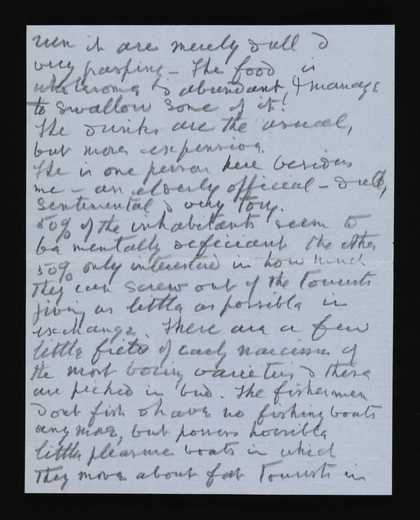 men in it are merely dull &
very grasping – The food is
wholesome & abundant, & I manage
to swallow some of it!
The drinks are the usual,
but more expensive.
The is one person here besides
me – an elderly official – dull,
sentimental & very Tory.
50% of the inhabitants seem to
be mentally deficient the other
50% only interested in how much
they can screw out of the Tourists
giving as little as possible in
exchange. There are a few
little fields of early narcissus of
the most boring varieties & these
are picked in bud. The fishermen
don't fish & have no fishing boats
any more, but possess horrible
little pleasure boats in which
They move about fat Tourists in